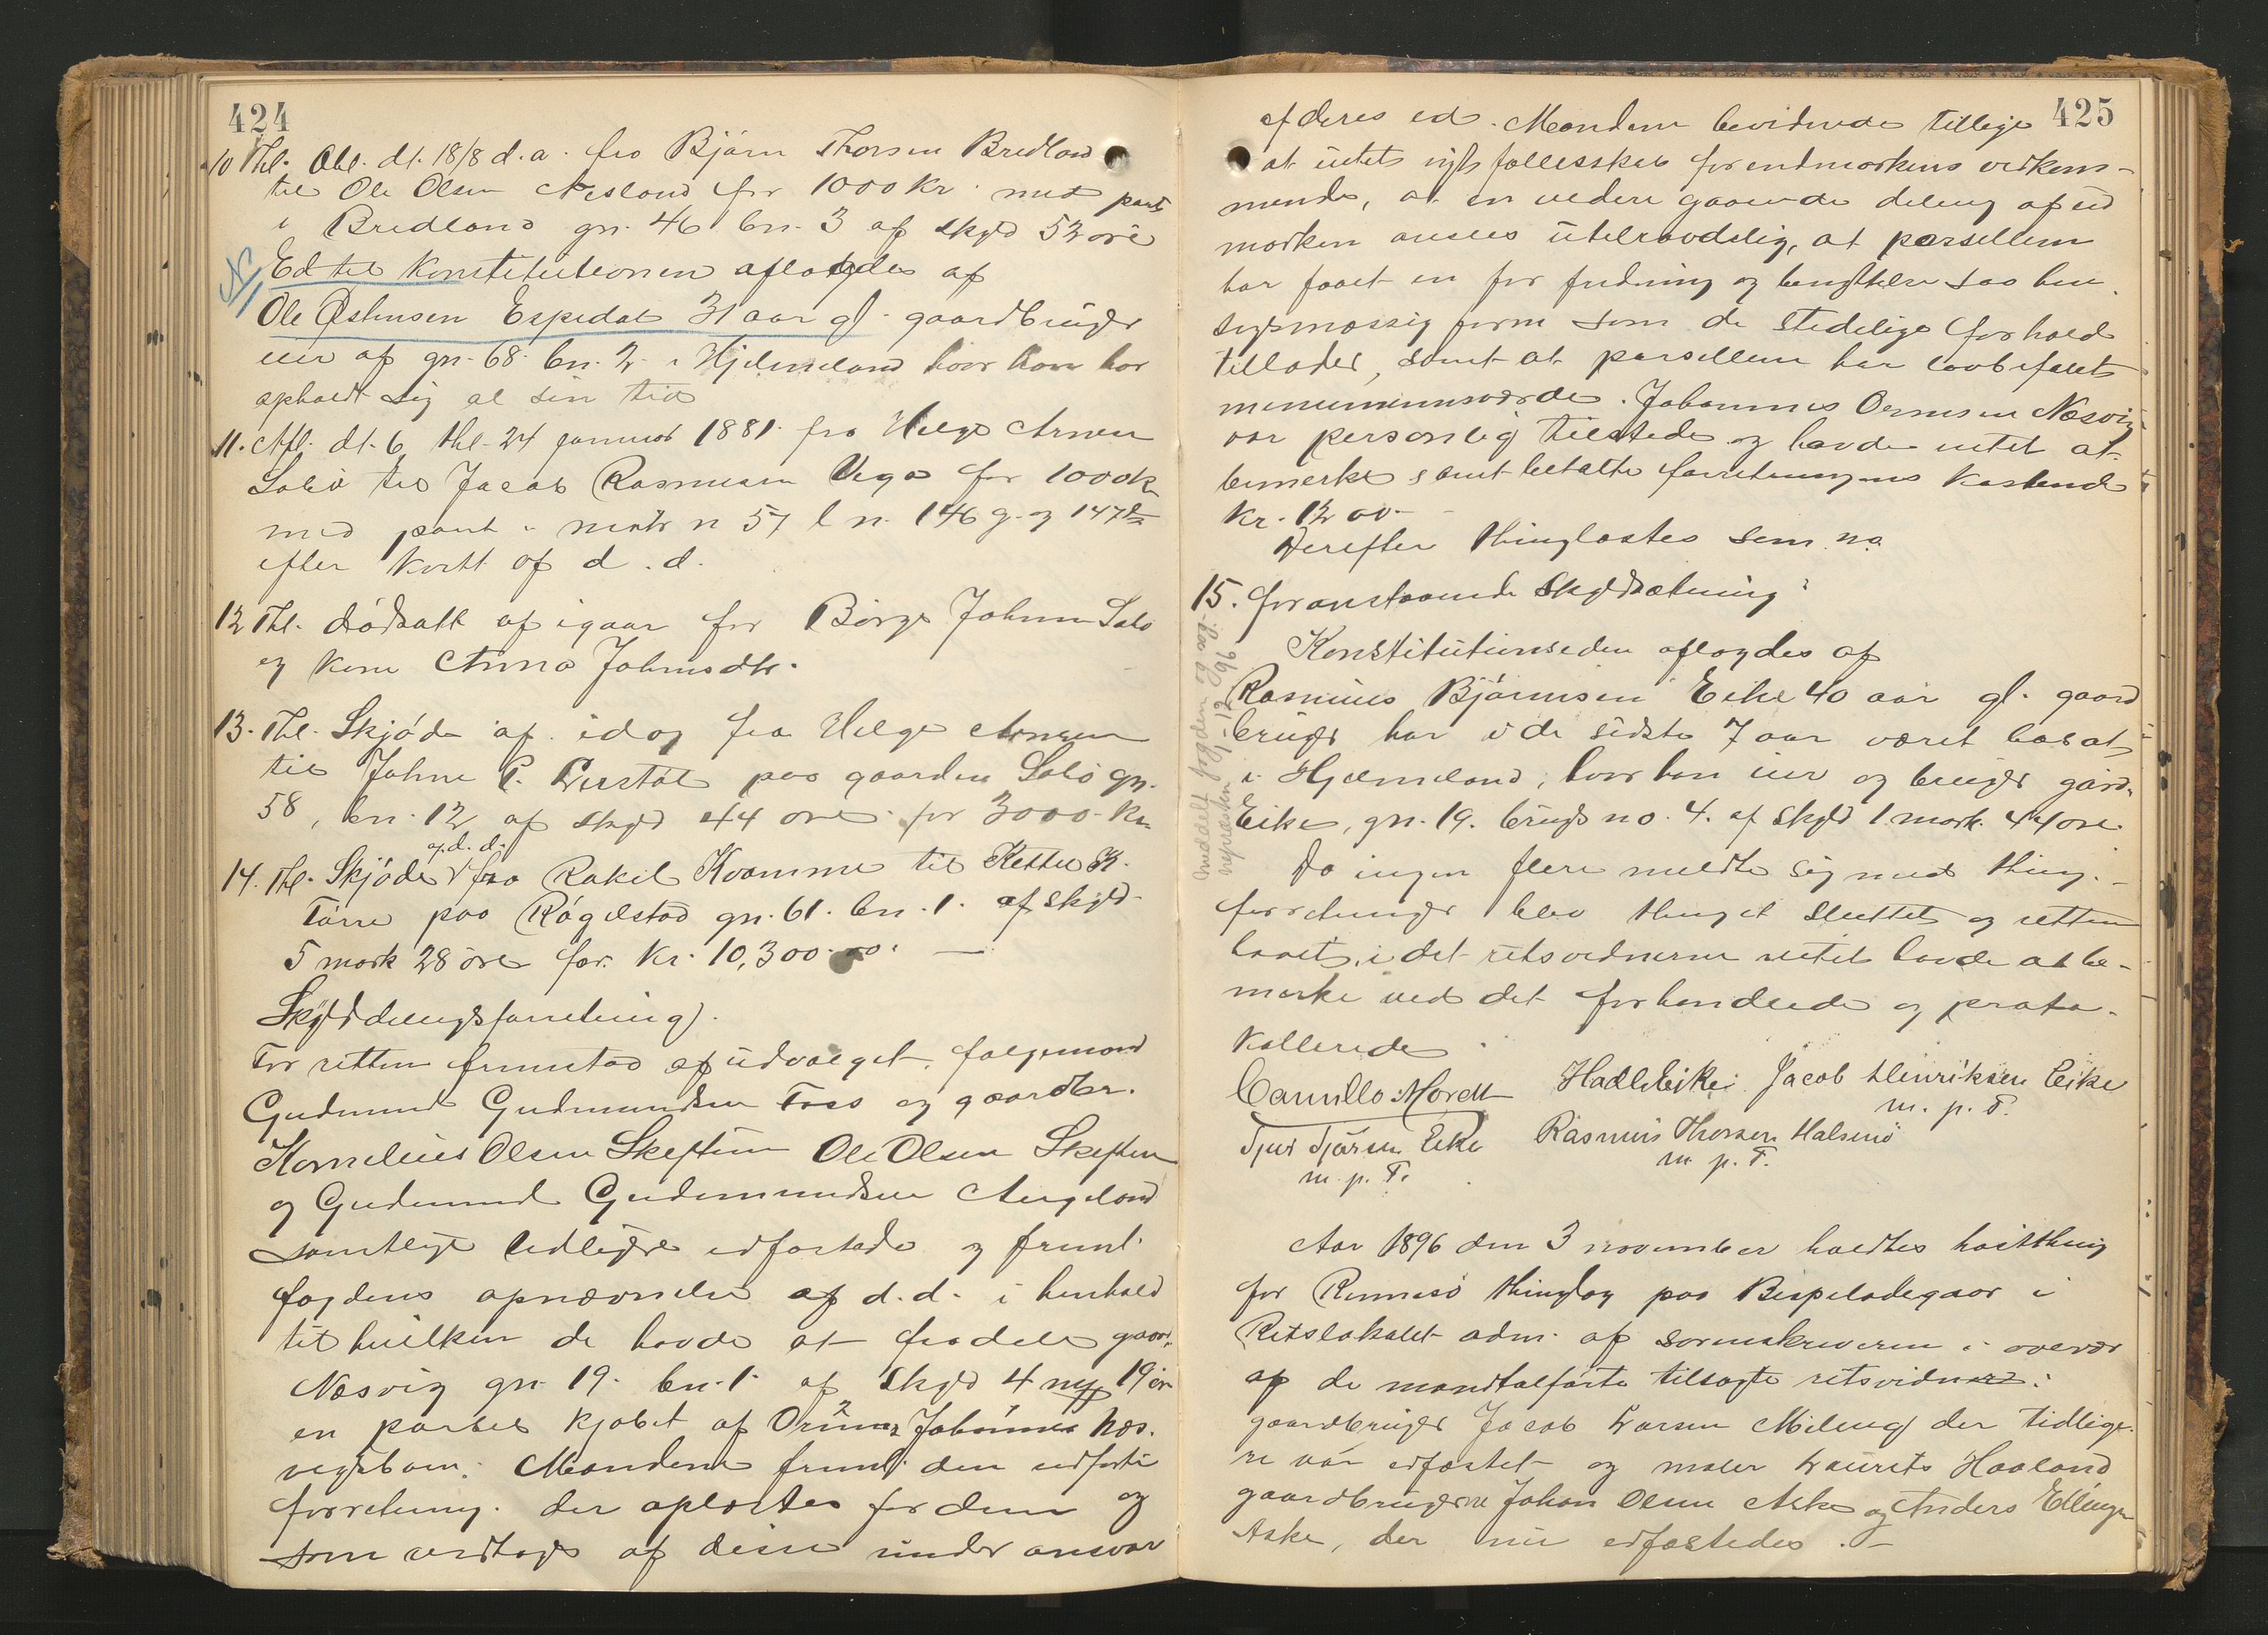 424
10 Thl. Obl. dt. 18/8 d.a. fra Bjørn Thorsen Bredland
til Ole Olsen Nesland for 1000 Kr. med pant
i Bredland gn. 46 bn. 3 af skyld 52 øre
Ed til Konstitutionen aflagdes af
Ole Østensen Espedal 31 aar gl. gaardbruger
eier af gn. 68 bn. 2 i Hjelmeland hvor han har
opholdt sig al sin tid
11. Afl. dt. 6 thl. 24 januar 1881 fra Helge Arnesen
Sabø til Jacob Rasmusen Vega for 1000 Kr
med pant i matr n 57 l n. 146 g. og 147
efter Kvitt af d.d.
12 Thl. dødsatt af igaar for Børge Johnsen Sabø
og kone Anna Johnsdtr.
13. Thl. Skjøde af idag fra Helge Arnesen
til Johne P. paa gaarden Sabø gn.
58, bn. 12 af skyld 44 øre for 3000 Kr
14. Thl. Skjøde af d.d. fra Rakel Kvamme til Kettel K.
Tørre paa Røgelstad gn. 61. bn. 1. af skyld
5 mark 28 øre for Kr. 10,300.00. —
Skylddelingsforretning.
For retten fremstod af udvalget følgemænd
Gudmund Gudmundsen Foss og gaardbr.
Kornelius Olsen Skeftun Ole Olsen Skeftun
og Gudmund Gudmundsen Aageland
samtlige tidligere edfæstede og freml.
fogdens opnævnelse af d.d. i henhold
til hvilken de havde at fradele gaard.
Næsvig gn. 19. bn. 1. af skyld 4 19 øre
en parsel kjøbt af Johannes Næs-
. Mændene freml. den udførte
forretning der oplæstes for dem og
som vedtoges af disse under ansvar
425
af deres ed. Mændene bevidnede tillige
at intet fællesskab for indmarkens vedkom-
mende, at en videre gaaende deling af ud
marken ansees utilraadelig, at parsellen
har faaet en for fredning og benyttelse saa hen-
sigsmæssig form som de stedelige forhold
tillader, samt at parsellen har lovbefalet
minimumsværdi. Johannes Ormsen Næsvig
var personlig tilstede og havde intet at
bemerke samt betalte forretningens kostende
Kr. 12 00.
Derefter thinglæstes som no
15. foranstaaende skyldsætning:
Konstitutionseden aflagdes af
Rasmus Bjørnsen Eike 40 aar gl. gaard
bruger har i de sidste 7 aar været bosat
i Hjelmeland, hvor han eier og bruger gård
Eike, gn. 19. brugs no. 4. af skyld 1 mark 44 øre.
Da ingen flere meldte sig med thing-
forretninger blev thinget sluttet og retten
hævet, i det retsvidnerne intet havde at be-
mærke ved det forhandlede og proto-
kollerede
Camillo Morell Hadle Eike Jacob Henriksen Eike
m. p. P.
Tjør Tjørsen Eike Rasmus Thorsen Halsenø
m. p. P. m. p. P.
meddelt fogden og sog-
nepræsten 1-12 96.
Aar 1896 den 3 november holdtes høstthing
for Rennesø thinglag paa Bispeladegaar i
Retslokalet adm. af sorenskriveren i overvær
af de mandtalførte tilsagte retsvidner:
gaardbruger Jacob Larsen Meling der tidlige-
re var edfæstet og maler Lauritz Haaland
gaardbrugerne Johan Olsen Aske og Anders Ellingsen
Aske, der nu edfæstedes. —